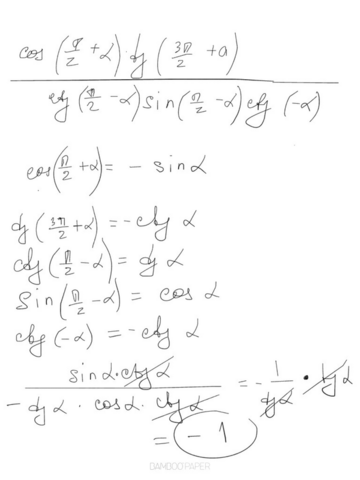 cos(π/2 + α) · tg(3π/2 + a)
ctg(π/2 - α) sin(π/2 - α) ctg(-α)
cos(π/2 + α) = - sin α
tg(3π/2 + α) = - ctg α
ctg(π/2 - α) = tg α
Sin(π/2 - α) = cos α
ctg(-α) = - ctg α
sin α · ctg α
- tg α · cos α · ctg α
= - 1/tg α · tg α
= - 1